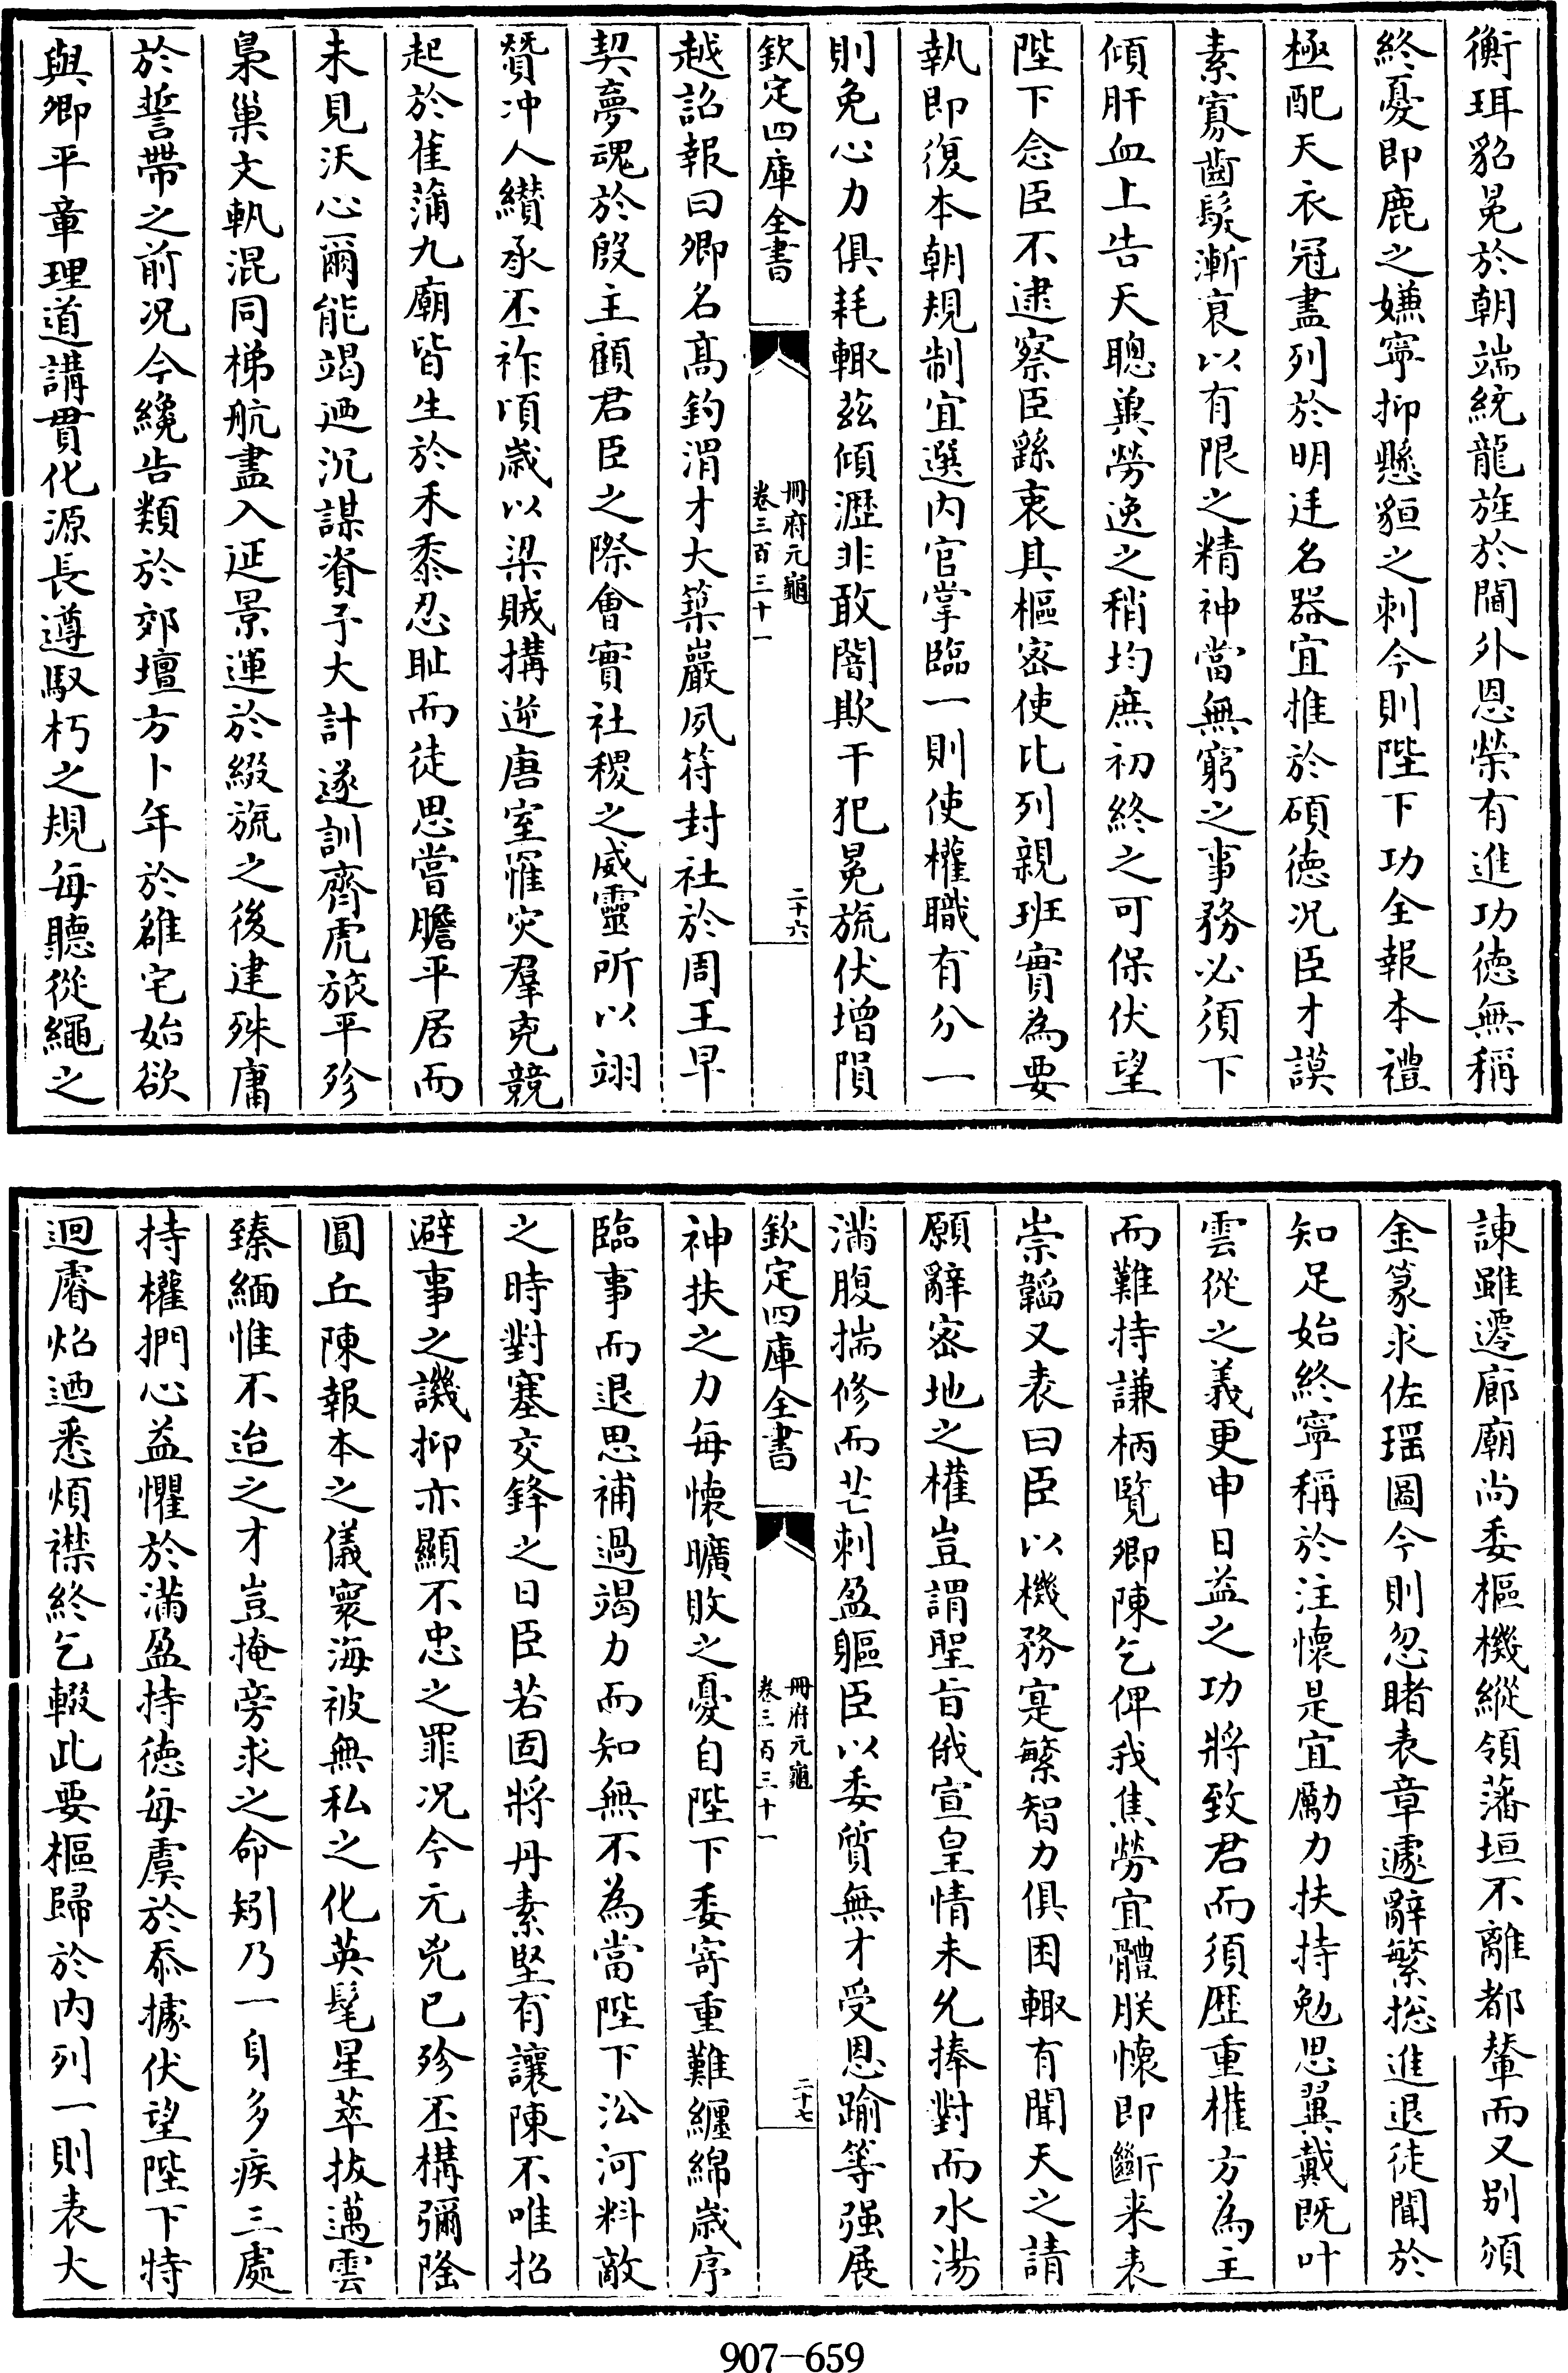 衡珥貂冕於朝端統龍旌於閫外恩榮有進功德無稱
終憂即鹿之嫌寧抑懸貆之刺今則陛下功全報本禮
極配天衣冠盡列於明廷名器宜推於碩德况臣才謨
素寡齒髮漸衰以有限之精神當無窮之事務必須下
傾肝血上告天聰兾勞逸之稍均庶初終之可保伏望
陛下念臣不逮察臣繇衷其樞密使比列親班實為要
執即復本朝規制宜選内官掌臨一則使權職有分一
則免心力俱耗輙兹傾瀝非敢闇欺干犯冕旒伏增隕
欽定四庫全書
冊府元龜
卷三百三十一
二十六
越詔報曰卿名髙釣渭才大築巖夙符封社於周王早
契夢魂於殷主顧君臣之際會實社稷之威靈所以翊
贊冲人纉承丕祚頃嵗以梁賊搆逆唐室罹灾羣兇競
起於萑蒲九廟皆生於禾黍忍耻而徒思嘗膽平居而
未見沃心爾能竭廼沉謀資予大計遂訓齊虎旅平殄
梟巢文軌混同梯航盡入延景運於綴旒之後建殊庸
於誓帶之前况今纔告類於郊壇方卜年於雒宅始欲
與卿平章理道講貫化源長遵馭朽之規每聽從繩之
諫雖遷廊廟尚委樞機縱領藩垣不離都輦而又别頒
金篆求佐瑶圖今則忽睹表章遽辭繁揔進退徒聞於
知足始終寧稱於注懷是宜勵力扶持勉思翼戴既叶
雲從之義更申日益之功將致君而須歴重權方為主
而難持謙柄覽卿陳乞俾我焦勞宜體朕懷即斷来表
崇韜又表曰臣以機務寔繁智力俱困輙有聞天之請
願辭密地之權豈謂聖旨俄宣皇情未允捧對而水湯
滿腹揣修而芒刺盈軀臣以委質無才受恩踰等强展
欽定四庫全書
冊府元龜
卷三百三十一
二十七
神扶之力每懷曠敗之憂自陛下委寄重難纒綿嵗序
臨事而退思補過竭力而知無不為當陛下㳂河料敵
之時對塞交鋒之日臣若固將丹素堅有讓陳不唯招
避事之譏抑亦顯不忠之罪况今元兇已殄丕構彌隆
圓丘陳報本之儀寰海被無私之化英髦星萃拔邁雲
臻緬惟不迨之才豈掩旁求之命矧乃一身多疾三處
持權捫心益懼於滿盈持德每虞於忝據伏望陛下特
迴睿炤廼悉煩襟終乞輟此要樞歸於内列一則表大
907-659